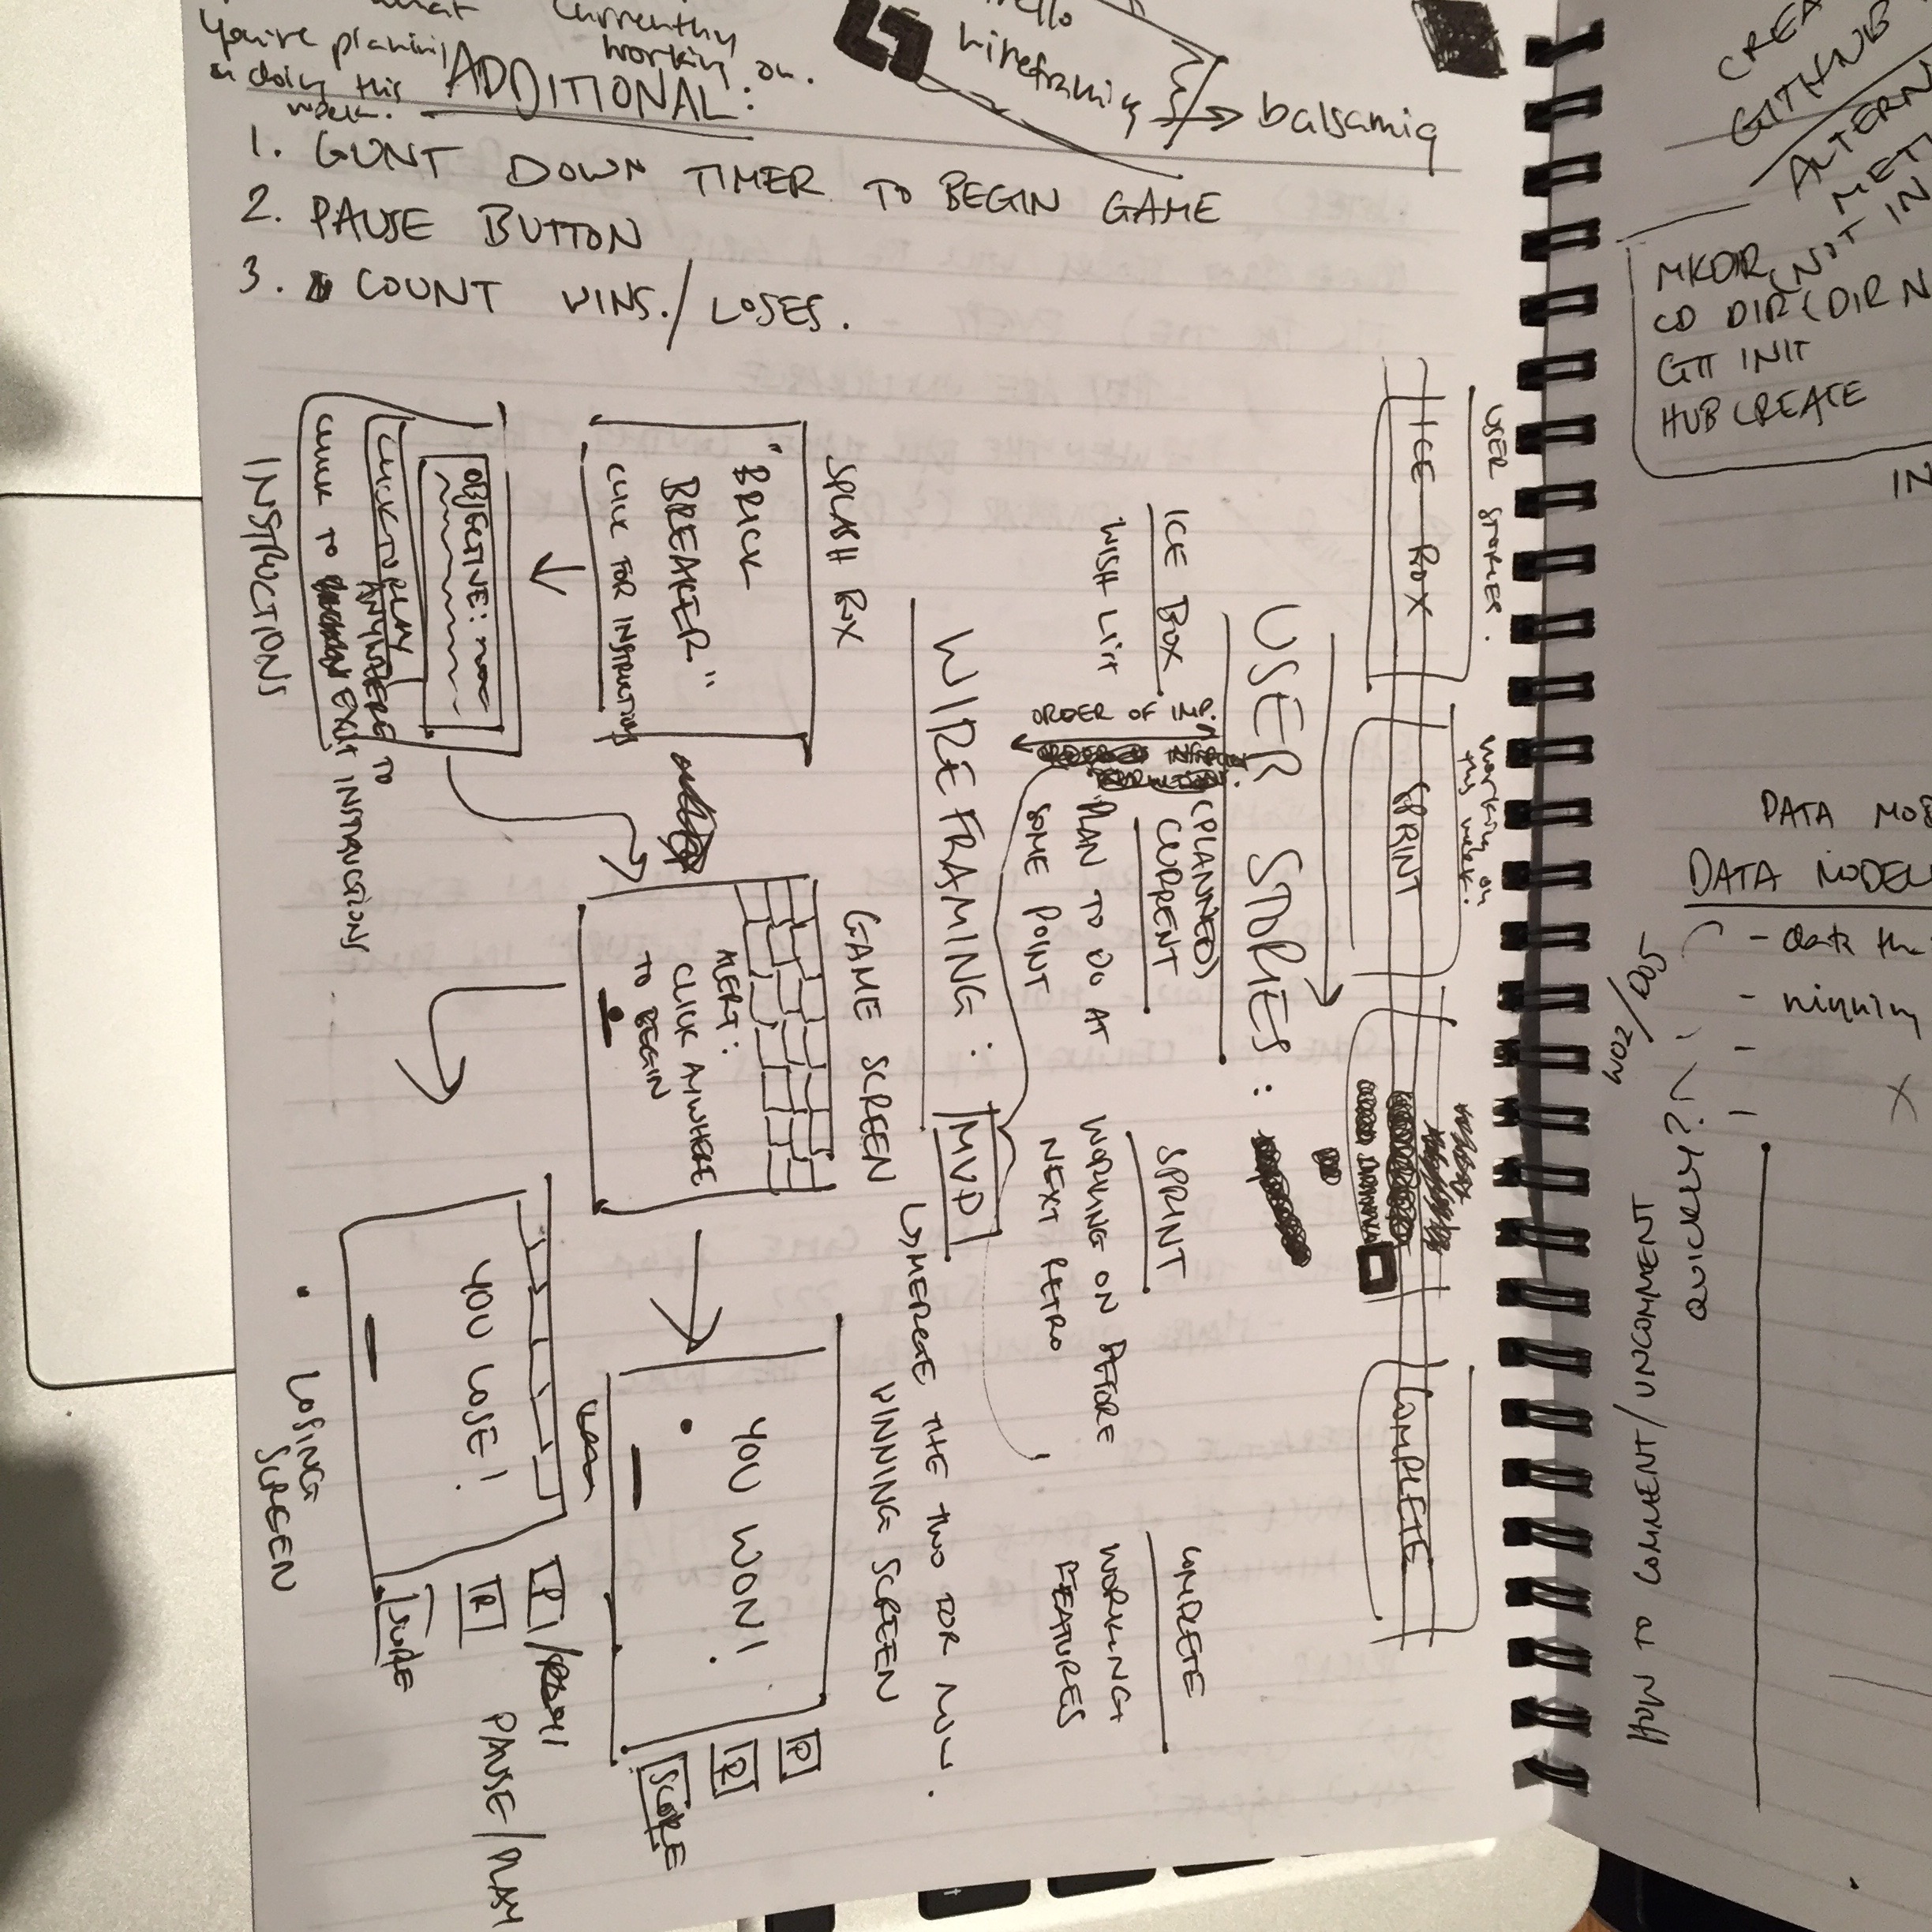 what currently
you're planning working on.
this
week.
wireframing
balsamiq
ADDITIONAL:
1. COUNT DOWN TIMER TO BEGIN GAME
2. PAUSE BUTTON
3. COUNT WINS./LOSES.
USER STORIES.
working on
this week.
ICE BOX
SPRINT
COMPLETE
USER STORIES:
ICE BOX
WISH LIST
ORDER OF IMP.
(PLANNED)
CURRENT
PLAN TO DO AT
SOME POINT
SPRINT
WORKING ON BEFORE
NEXT RETRO
COMPLETE
WORKING
FEATURES
WIREFRAMING:
MVP
SPLASH BOX
"BRICK
BREAKER"
CLICK FOR INSTRUCTIONS
OBJECTIVE:
CLICK TO PLAY
ANYWHERE TO
CLICK TO EXIT INSTRUCTIONS
INSTRUCTIONS
GAME SCREEN
ALERT:
CLICK ANYWHERE
TO BEGIN
MERGE THE TWO FOR NOW.
WINNING SCREEN
YOU WON!
P
R
SCORE
YOU LOSE!
P
R
SCORE
PAUSE/PLAY
LOSING
SCREEN
CREA
GITHUB
ALTERN
MET
MKDIR (NOT IN
CD DIR (DIR N
GIT INIT
HUB CREATE
IN
DATA MOD
DATA MODEL
- data the
- winning
W02/D05
HOW TO COMMENT/UNCOMMENT
QUICKLY?